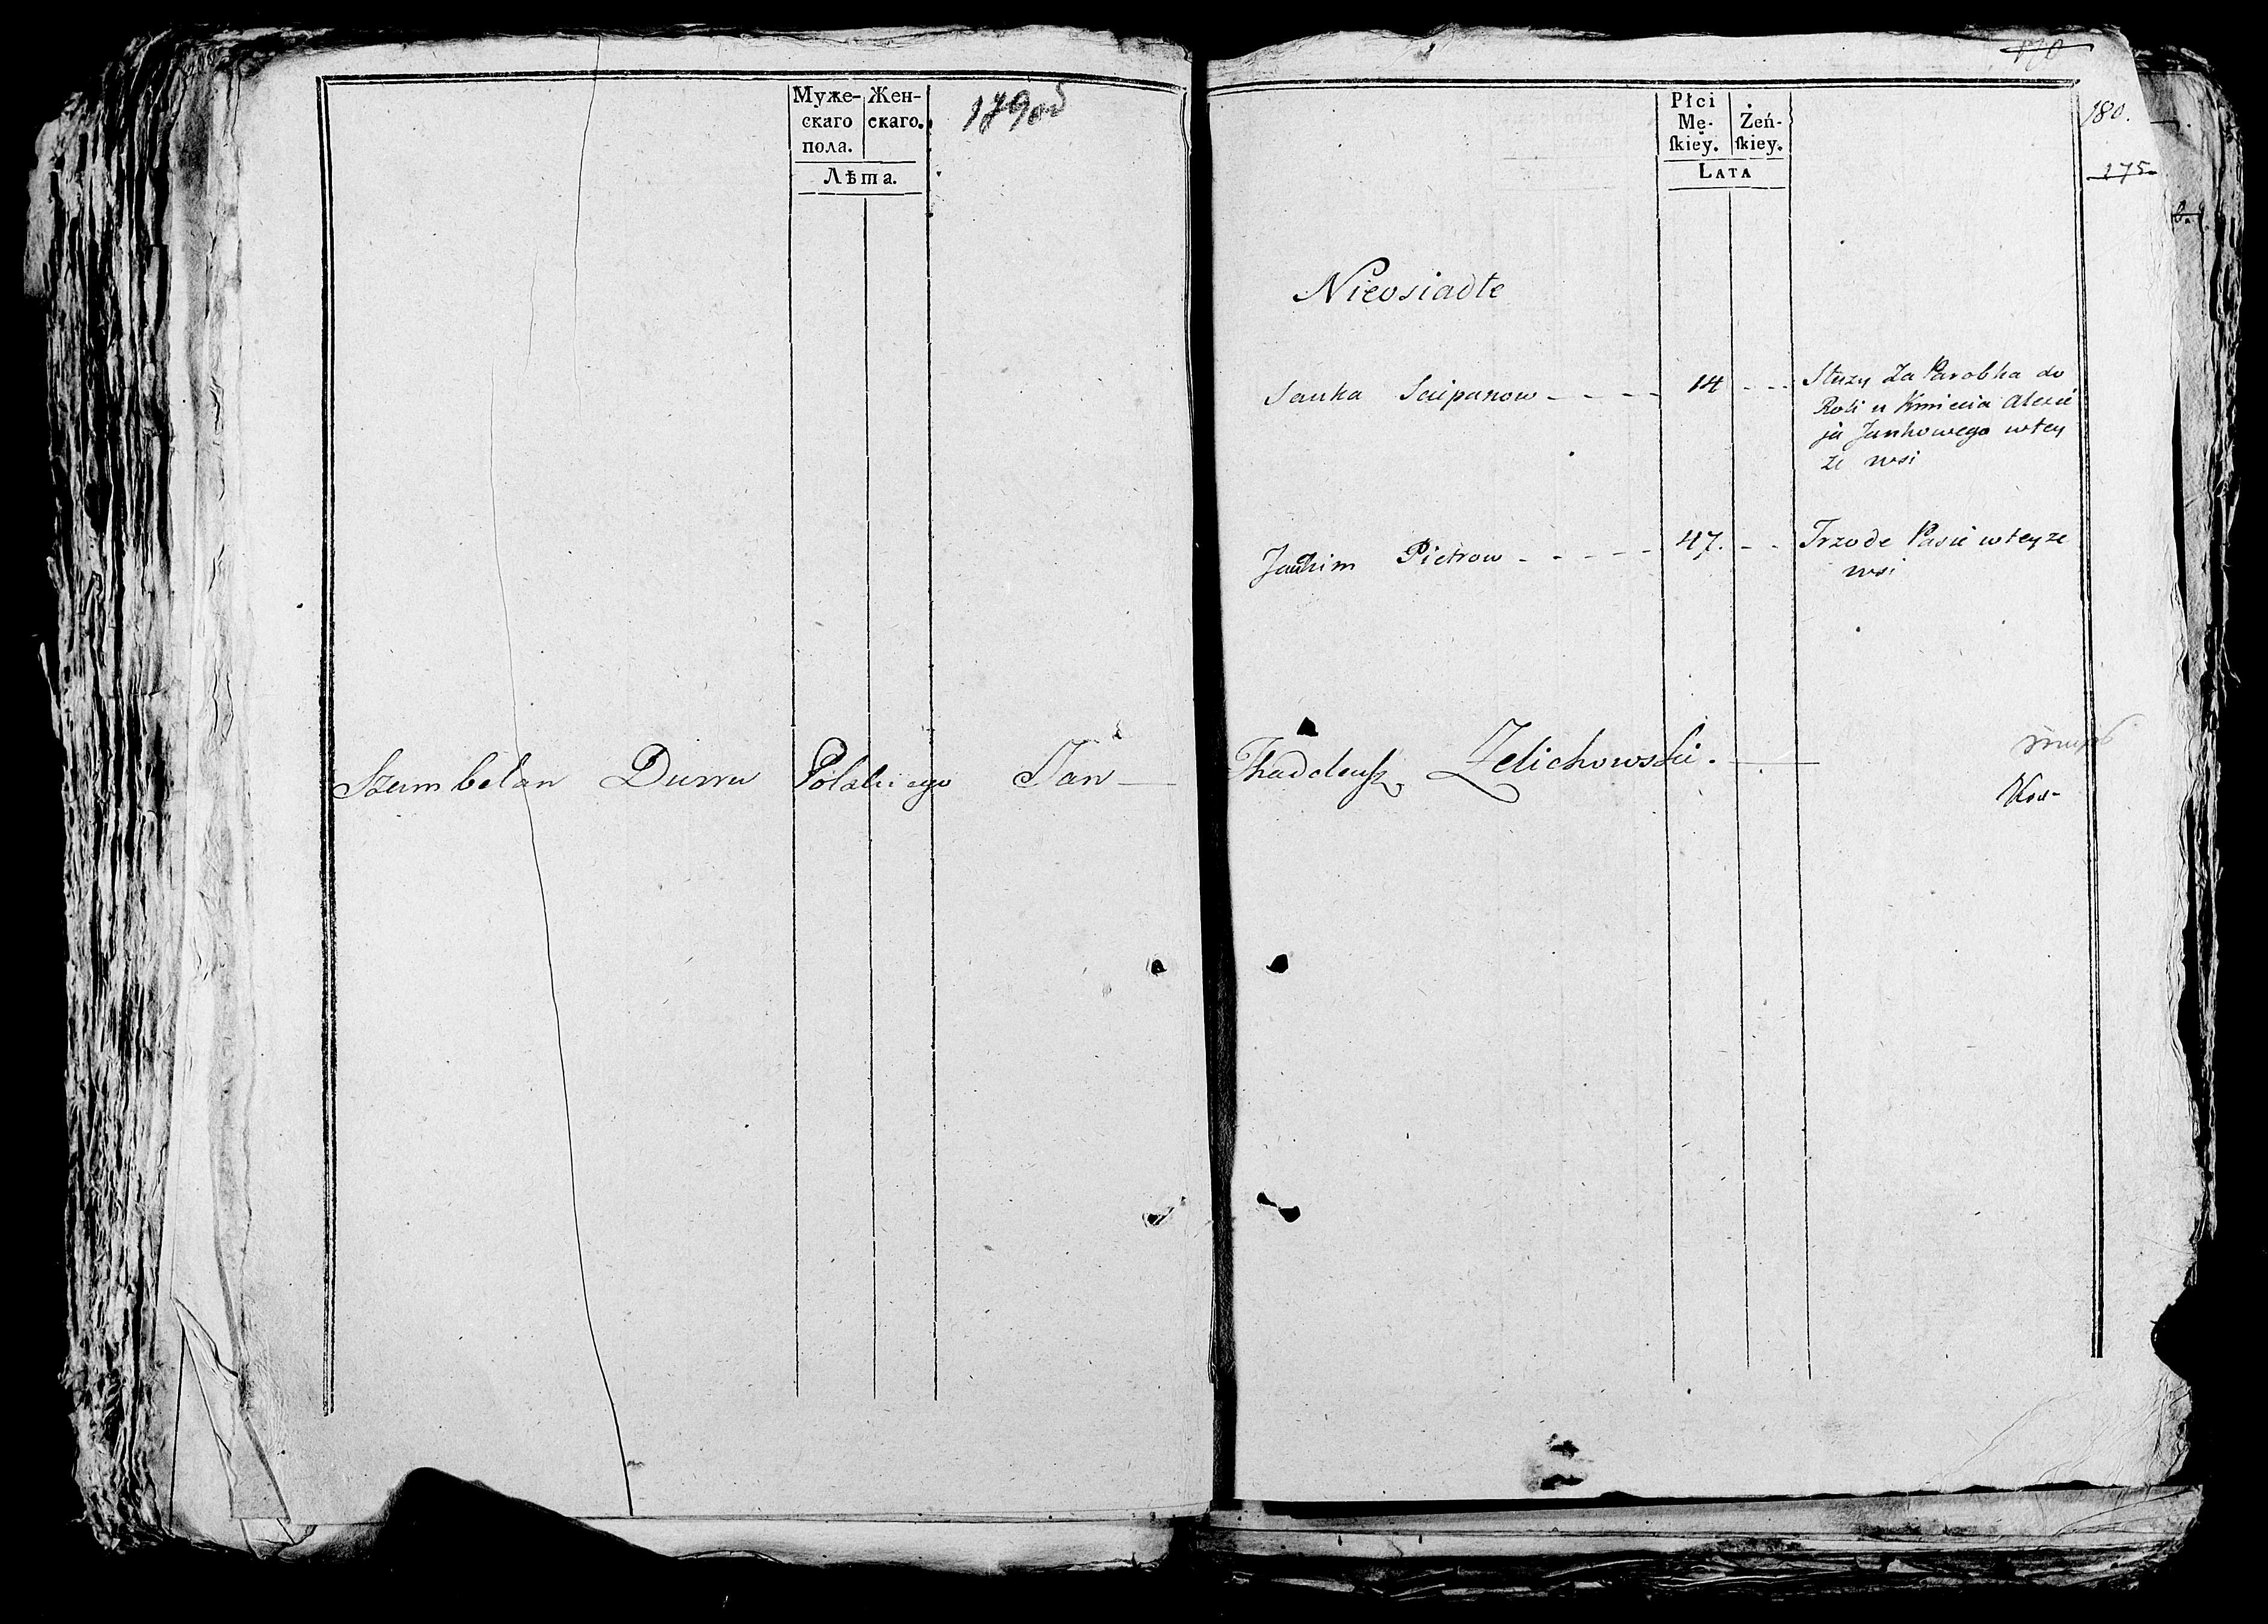 Муже-
скаго
пола.
Жен-
скаго.
Лѣта.
179об
170
180.
175
Płci
Mę-
ſkiey.
Żeń-
ſkiey.
LATA
Nieosiadłe
Sauka Sciepanow - - - - 14 - - -
Służy Za Parobka do
Roli u Kmiecia Alexie
ja Jankowego wtey
że wsi
Jachim Pietrow - - - - - 47. - -
Trzode Pasie wteyże
wsi
Szambelan Dwru Polskiego Jan — Thaddeusz Zelichowski. —